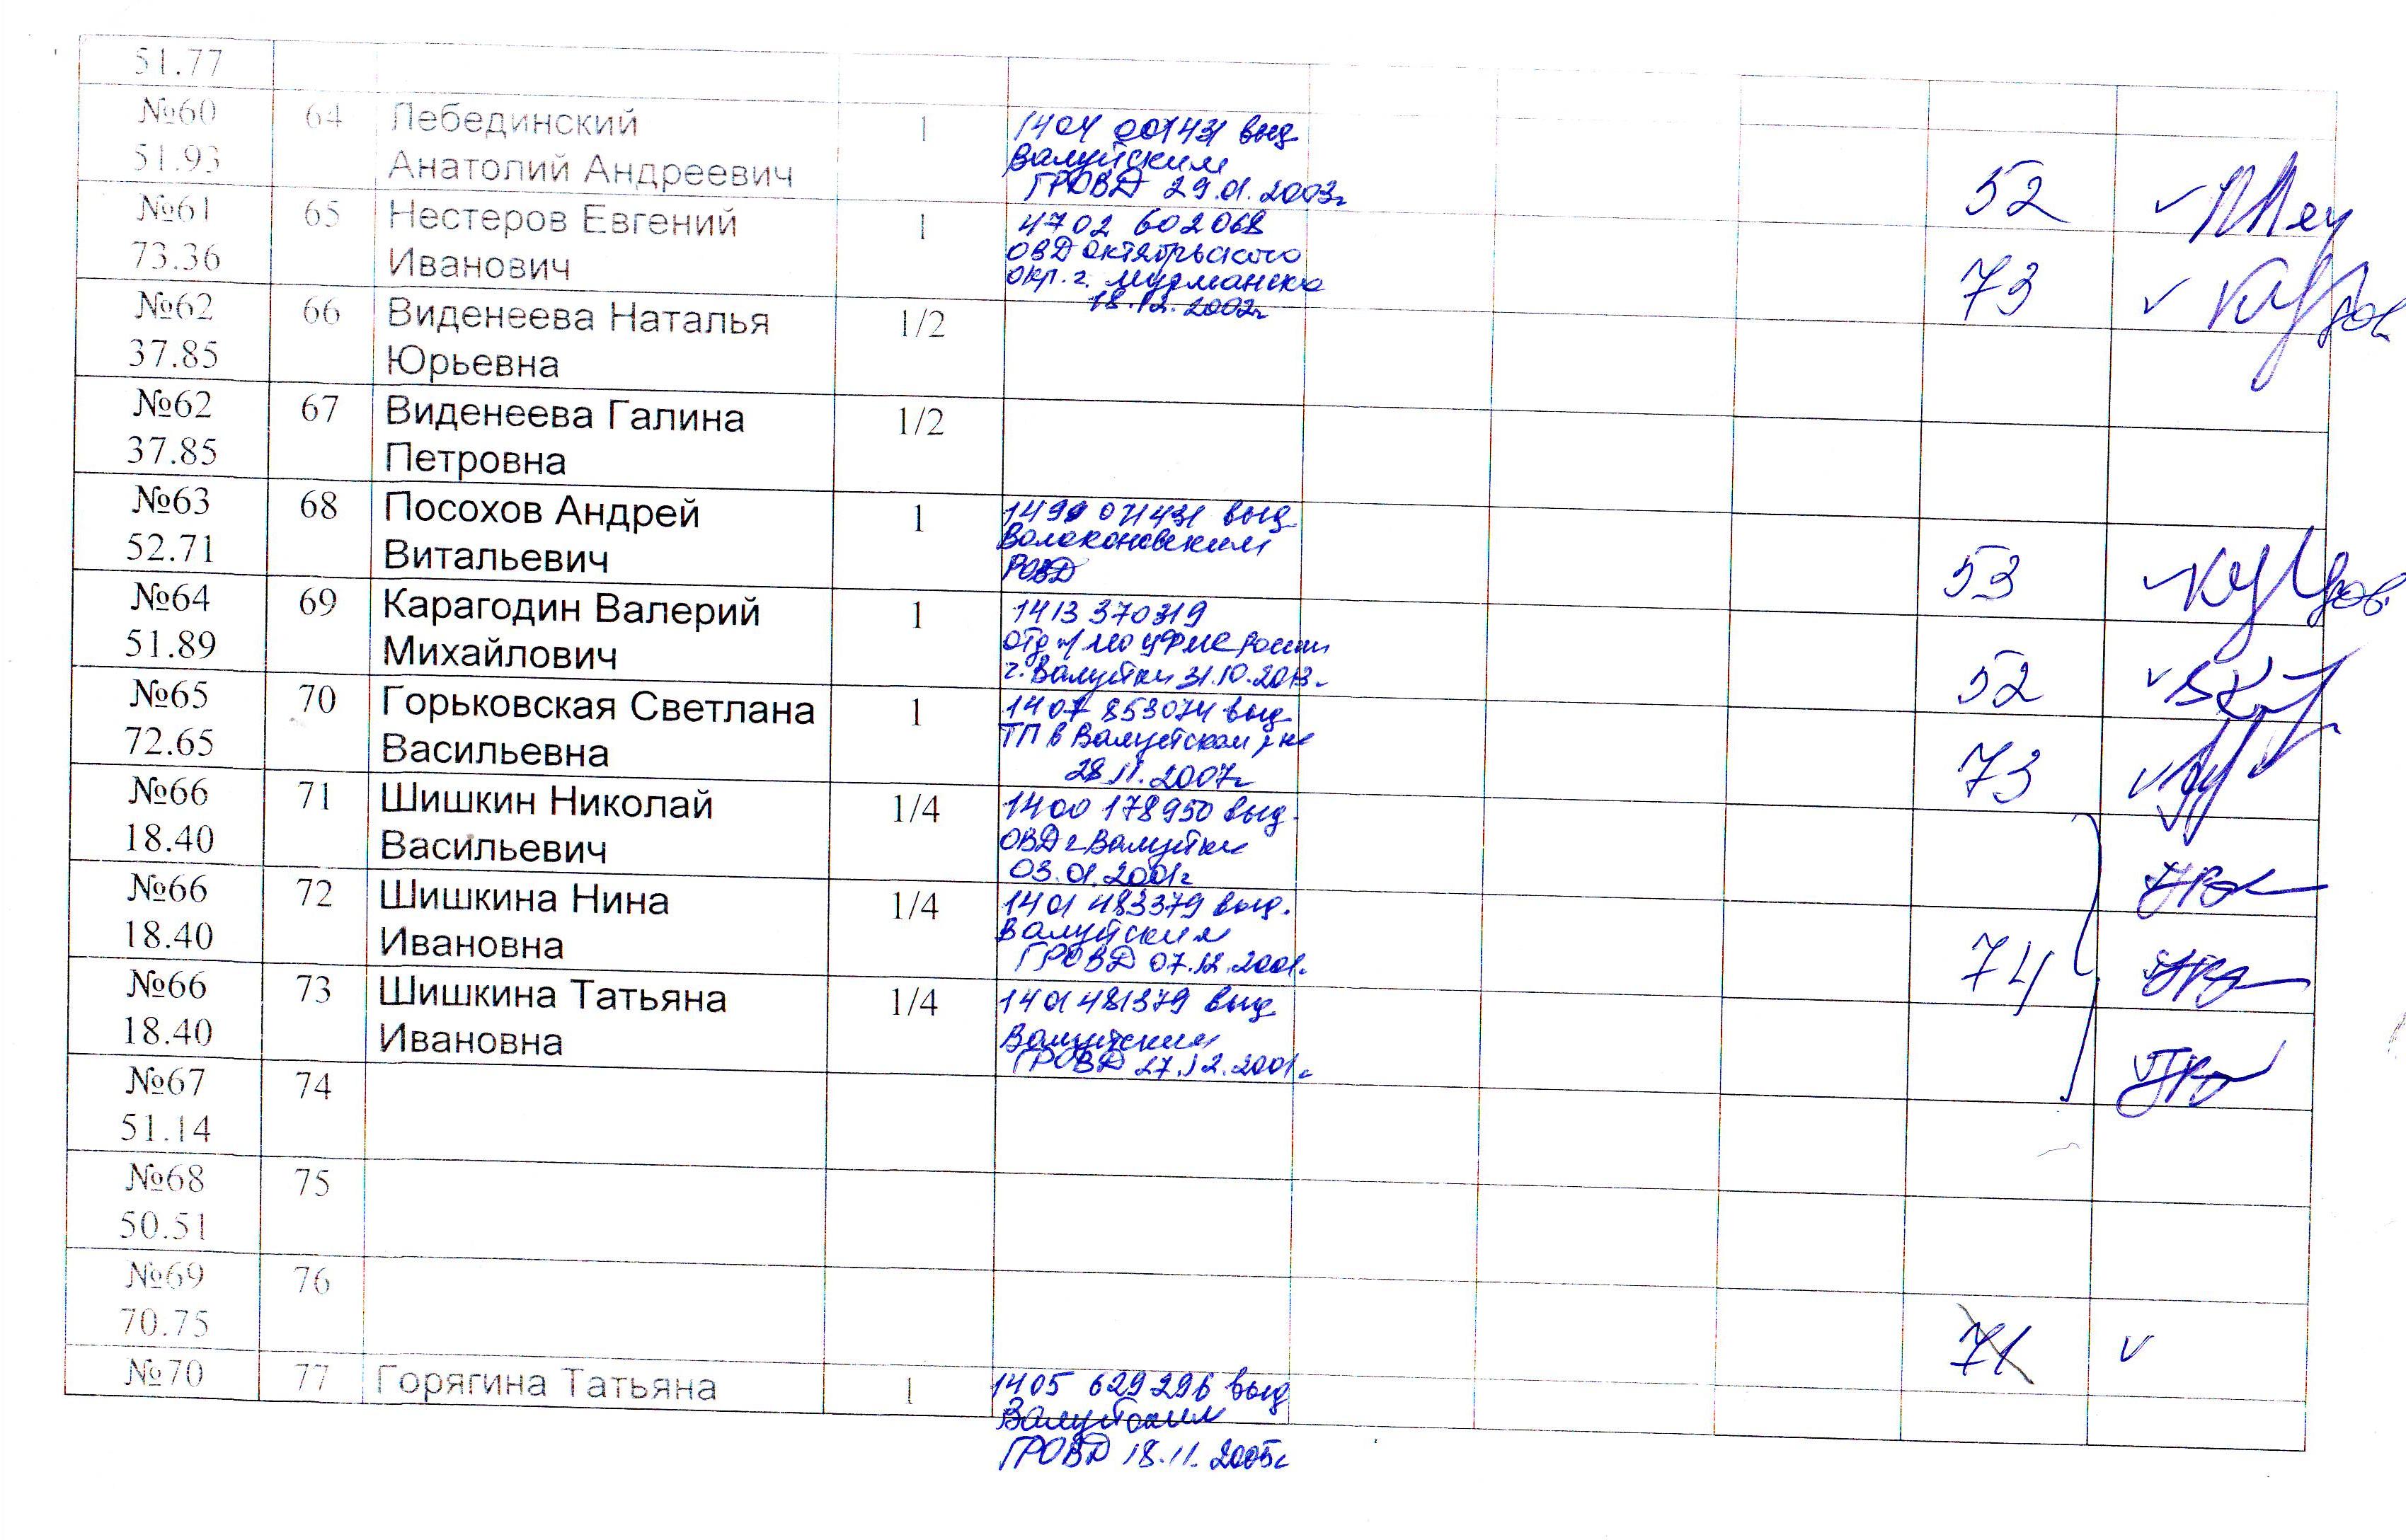 51.77
№60 64 Лебединский 1 1404 001431 выд
51.93 Анатолий Андреевич Валуйским
ГРОВД 29.01.2003г 52
№61 65 Нестеров Евгений 1 4702 602068
73.36 Иванович ОВД Октябрьского
окр. г. Мурманска 73
18.12.2002г
№62 66 Виденеева Наталья 1/2
37.85 Юрьевна
№62 67 Виденеева Галина 1/2
37.85 Петровна
№63 68 Посохов Андрей 1 071431 выд
52.71 Витальевич Волоконовским
РОВД 53
№64 69 Карагодин Валерий 1 1413 370319
51.89 Михайлович УФМС России
г. Валуйки 31.10.2013г 52
№65 70 Горьковская Светлана 1 1407 853074 выд
72.65 Васильевна ТП в Валуйском р-не
28.11.2007г 73
№66 71 Шишкин Николай 1/4 1400 178950 выд.
18.40 Васильевич ОВД г Валуйки
03.01.2001г
№66 72 Шишкина Нина 1/4 1401 483379 выд.
18.40 Ивановна Валуйским
ГРОВД 07.12.2001г. 74
№66 73 Шишкина Татьяна 1/4 1401 481379 выд
18.40 Ивановна Валуйским
ГРОВД 27.12.2001г.
№67 74
51.14
№68 75
50.51
№69 76
70.75 71
№70 77 Горягина Татьяна 1 1405 629296 выд
Валуйским
ГРОВД 18.11.2005г